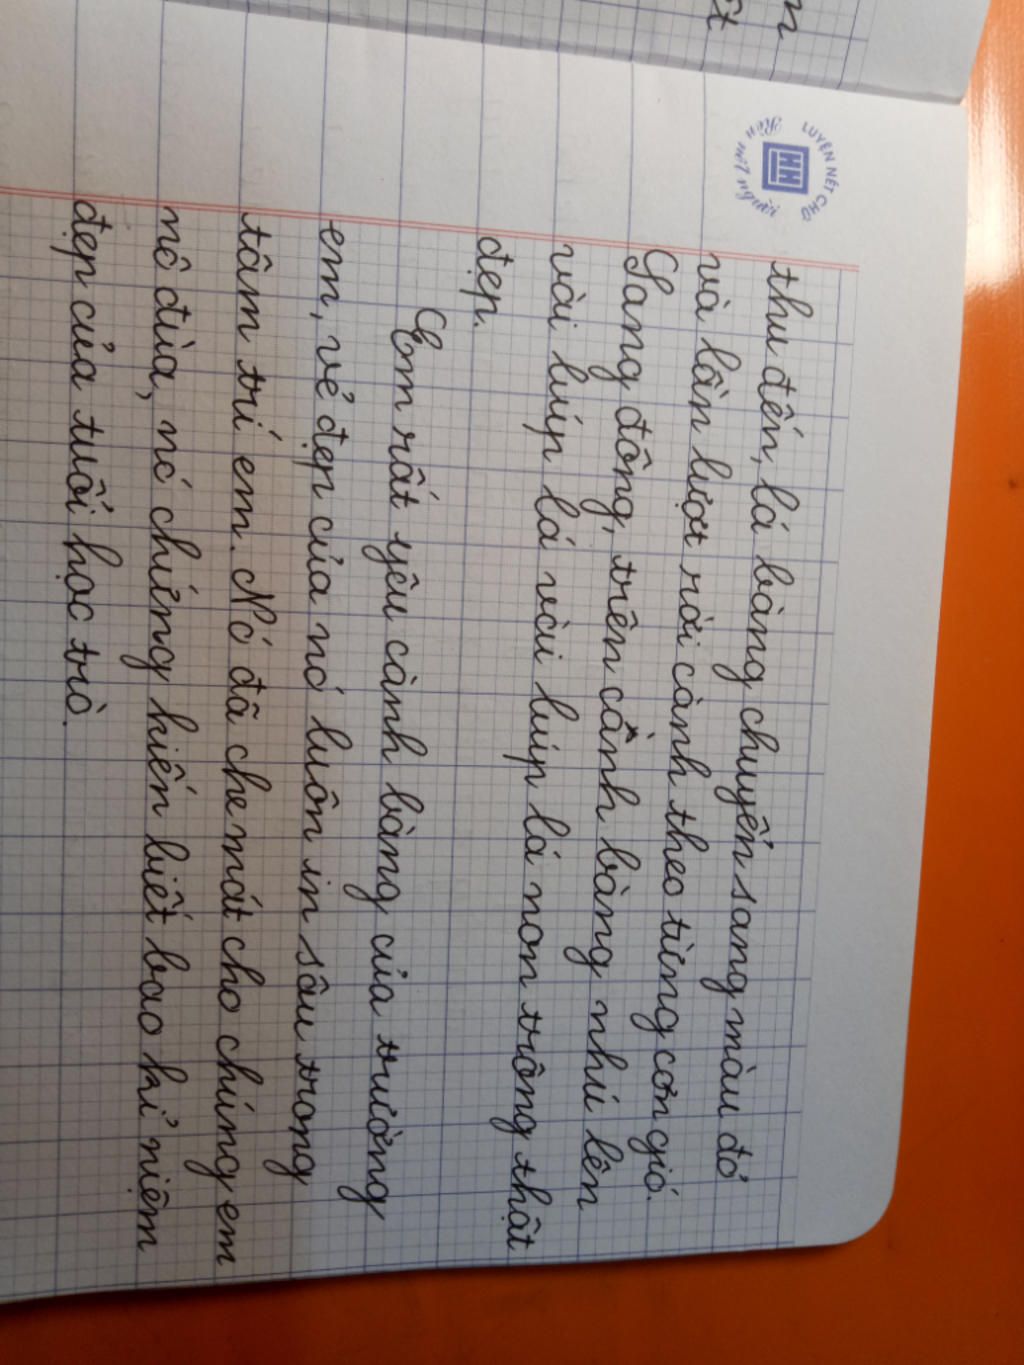 LUYỆN NÉT CHỮ
Rèn nết người
thu đến, lá bàng chuyển sang màu đỏ
và lần lượt rời cành theo từng cơn gió.
Sang đông, trên cành bàng nhú lên
vài búp lá vài búp lá non trông thật
đẹp.
Em rất yêu cành bàng của trường
em, vẻ đẹp của nó luôn in sâu trong
tâm trí em. Nó đã che mát cho chúng em
nô đùa, nó chứng kiến biết bao kỉ niệm
đẹp của tuổi học trò.